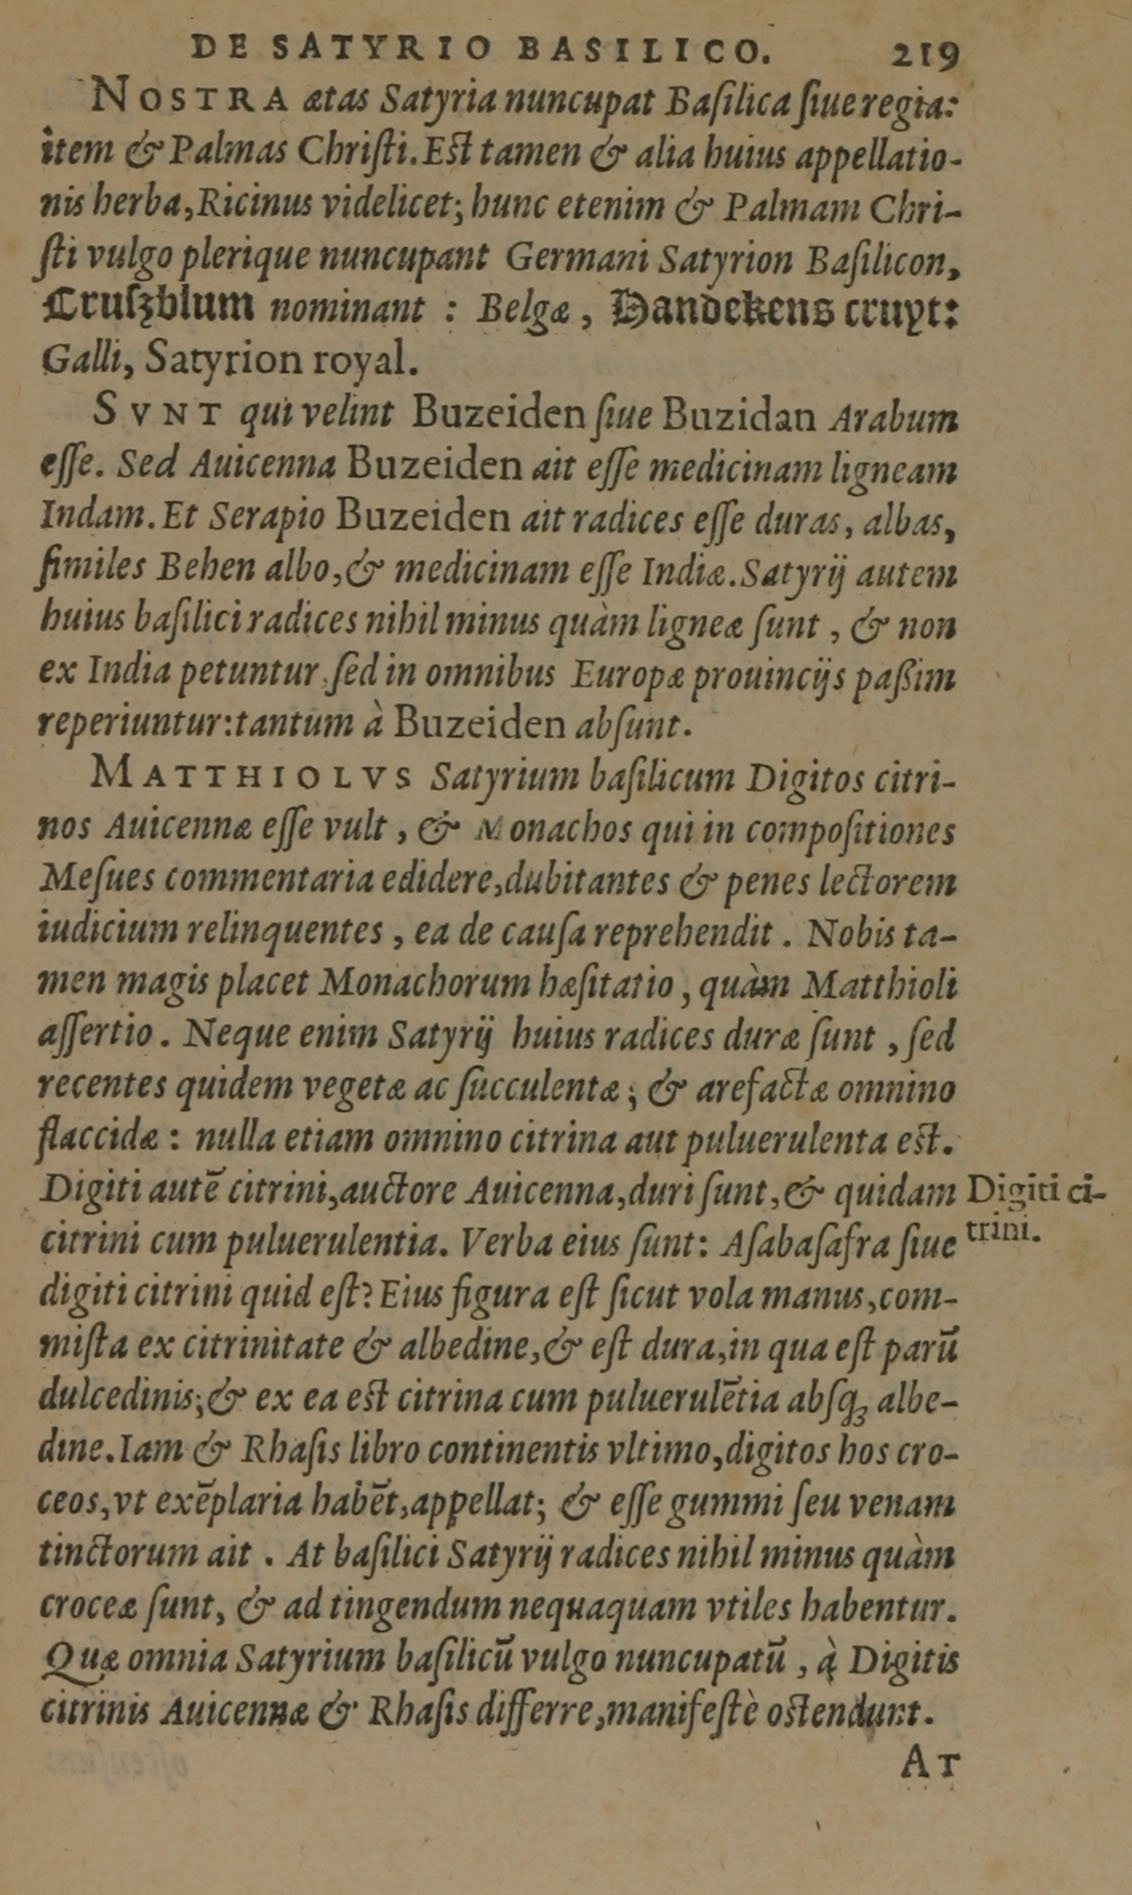 DE SATYRIO BASILICO. 219
NOSTRA ætas Satyria nuncupat Baſilica ſiue regia:
item & Palmas Chriſti. Eſt tamen & alia huius appellatio-
nis herba, Ricinus videlicet; hunc etenim & Palmam Chri-
ſti vulgo plerique nuncupant Germani Satyrion Baſilicon,
Cruſzblum nominant : Belgæ , Handekens cruyt:
Galli, Satyrion royal.
SVNT qui velint Buzeiden ſiue Buzidan Arabum
eſſe. Sed Auicenna Buzeiden ait eſſe medicinam ligneam
Indam. Et Serapio Buzeiden ait radices eſſe duras, albas,
ſimiles Behen albo, & medicinam eſſe Indiæ. Satyrij autem
huius baſilici radices nihil minus quàm ligneæ ſunt , & non
ex India petuntur ſed in omnibus Europæ prouincijs paßim
reperiuntur: tantum à Buzeiden abſunt.
MATTHIOLVS Satyrium baſilicum Digitos citri-
nos Auicennæ eſſe vult , & Monachos qui in compoſitiones
Meſues commentaria edidere, dubitantes & penes lectorem
iudicium relinquentes , ea de cauſa reprehendit . Nobis ta-
men magis placet Monachorum hæſitatio , quàm Matthioli
aſſertio . Neque enim Satyrij huius radices duræ ſunt , ſed
recentes quidem vegetæ ac ſucculentæ ; & arefactæ omnino
flaccidæ : nulla etiam omnino citrina aut puluerulenta eſt.
Digiti autē citrini, auctore Auicenna, duri ſunt, & quidam
Digiti ci-
trini.
citrini cum puluerulentia. Verba eius ſunt: Aſabaſafra ſiue
digiti citrini quid eſt? Eius figura eſt ſicut vola manus, com-
miſta ex citrinitate & albedine, & eſt dura, in qua eſt parū
dulcedinis; & ex ea eſt citrina cum puluerulētia abſqꝫ albe-
dine. Iam & Rhaſis libro continentis vltimo, digitos hos cro-
ceos, vt exēplaria habēt, appellat; & eſſe gummi ſeu venam
tinctorum ait . At baſilici Satyrij radices nihil minus quàm
croceæ ſunt, & ad tingendum nequaquam vtiles habentur.
Quæ omnia Satyrium baſilicū vulgo nuncupatū , à Digitis
citrinis Auicennæ & Rhaſis differre, manifeſtè oſtendunt.
AT